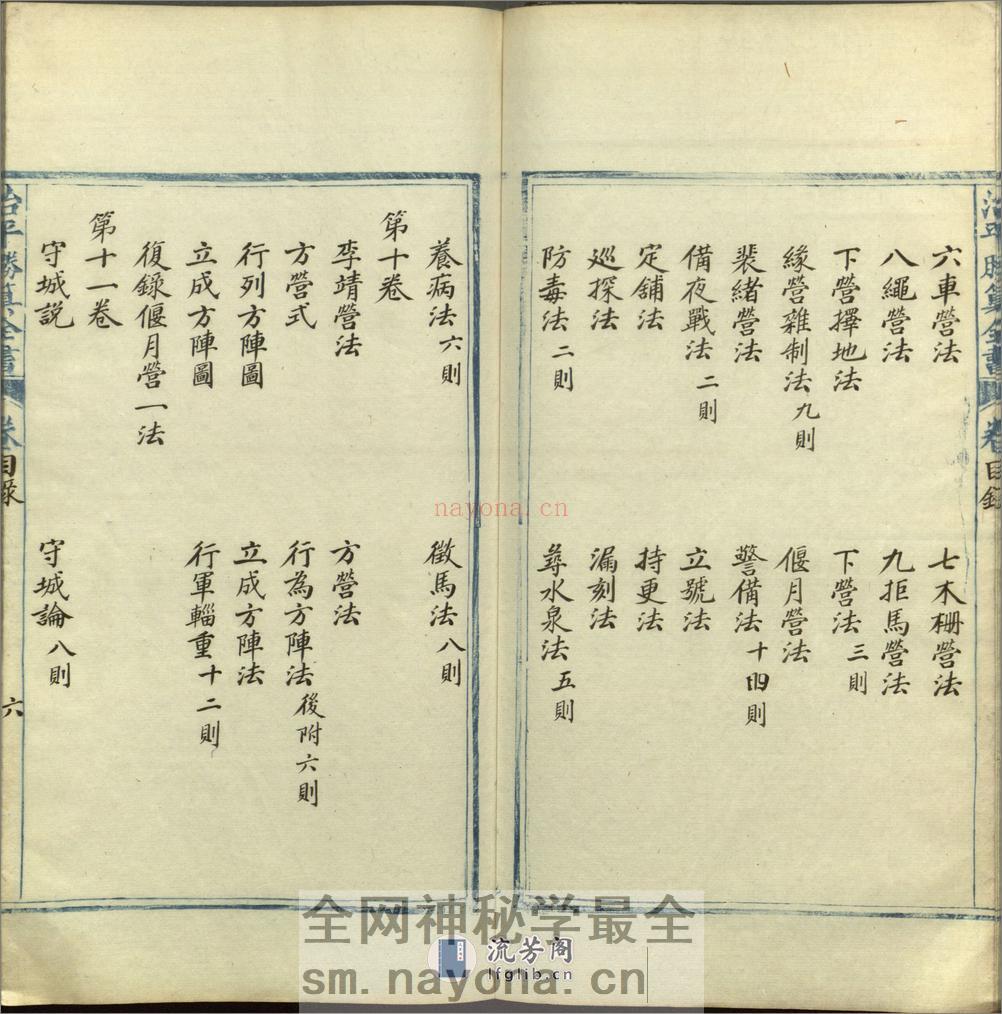 治平勝算全書 卷 目錄
六車營法 七木柵營法
八繩營法 九拒馬營法
下營擇地法 下營法三則
緣營雜制法九則 偃月營法
裴緒營法 警備法十四則
備夜戰法二則 立號法
定舖法 持更法
巡探法 漏刻法
防毒法二則 尋水泉法五則
養病法六則 徵馬法八則
第十卷
李靖營法 方營法
方營式 行為方陣法後附六則
行列方陣圖 立成方陣法
立成方陣圖 行軍輜重十二則
復錄偃月營一法
第十一卷
守城説 守城論八則
治平勝算全書 卷 目錄 六
nayona.cn
全网神秘学最全
流芳阁
lfglib.cn
sm.nayona.cn